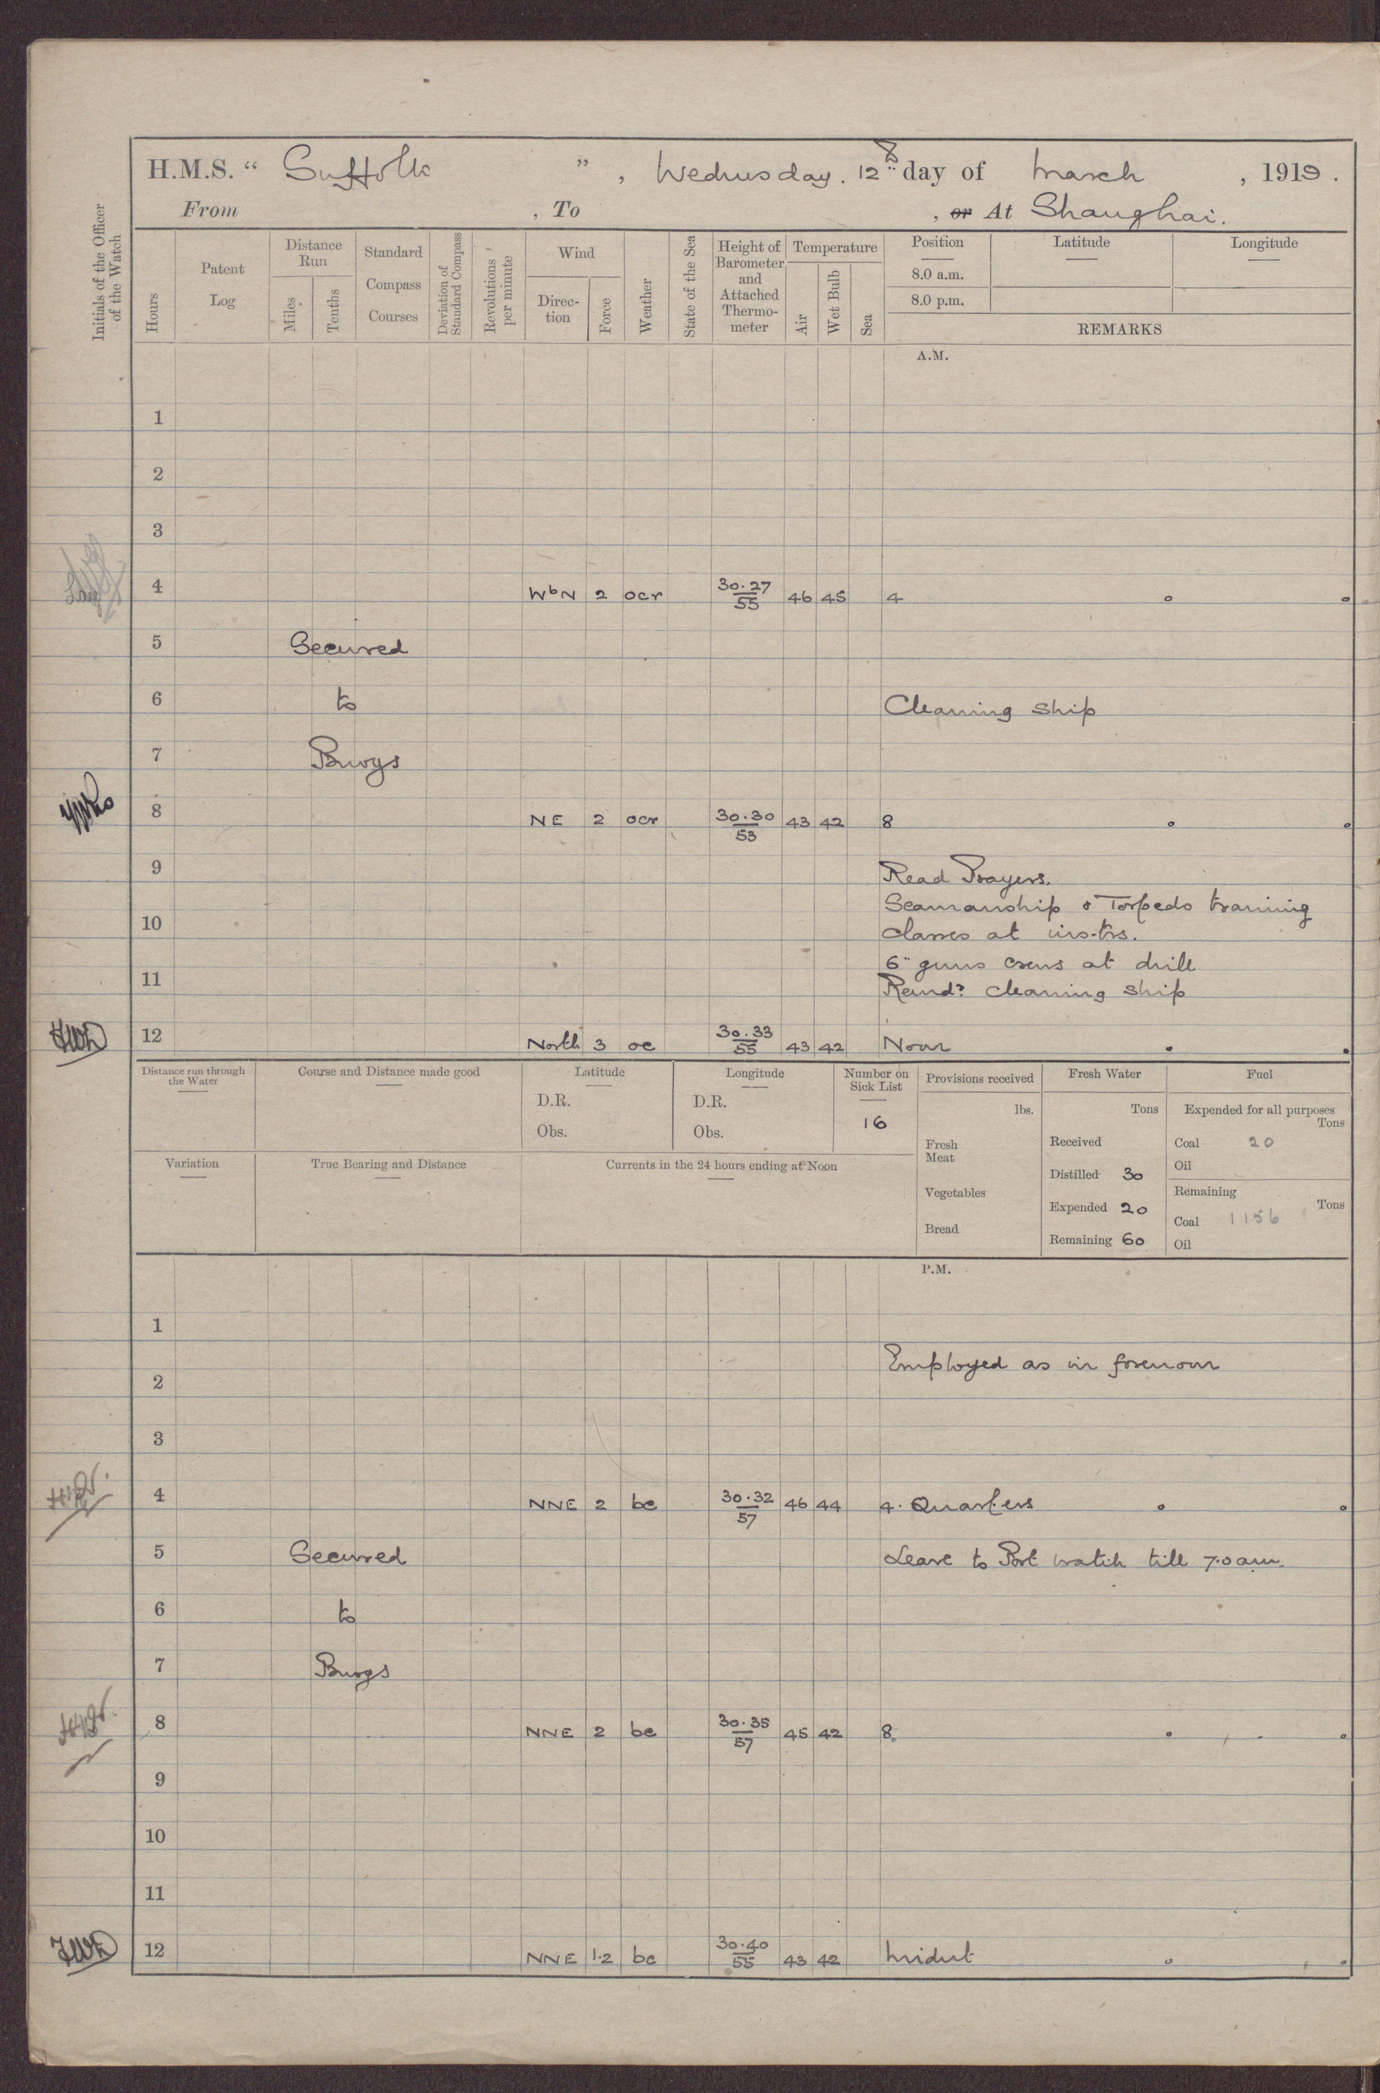 H.M.S. “ Suffolk ”, Wednesday. 12th day of March , 1919.
From , To , or At Shanghai.
Initials of the Officer of the Watch
Hours
Patent Log
Distance Run
Miles
Tenths
Standard Compass Courses
Deviation of Standard Compass
Revolutions per minute
Wind
Direc-tion
Force
Weather
State of the Sea
Height of Barometer and Attached Thermo-meter
Temperature
Air
Wet Bulb
Sea
Position Latitude Longitude
8.0 a.m.
8.0 p.m.
REMARKS
A.M.
1
2
3
4 WbN 2 ocr 30.27/55 46 45 4
5 Secured
6 to Cleaning ship
7 Buoys
8 NE 2 ocr 30.30/53 43 42 8
9 Read Prayers.
Seamanship & Torpedo training
10 classes at ins-trs.
6" guns crews at drill
11 Remdr cleaning ship
12 North 3 oc 30.33/55 43 42 Noon
Distance run through the Water
Course and Distance made good
Latitude
D.R.
Obs.
Longitude
D.R.
Obs.
Number on Sick List
16
Provisions received
lbs.
Fresh Meat
Vegetables
Bread
Fresh Water
Tons
Received
Distilled 30
Expended 20
Remaining 60
Fuel
Expended for all purposes
Tons
Coal 20
Oil
Remaining
Tons
Coal 1156
Oil
Variation
True Bearing and Distance
Currents in the 24 hours ending at Noon
P.M.
1
Employed as in forenoon
2
3
4 NNE 2 bc 30.32/57 46 44 4. Quarters
5 Secured Leave to Port watch till 7.0 am.
6 to
7 Buoys
8 NNE 2 bc 30.35/57 45 42 8.
9
10
11
12 NNE 1.2 bc 30.40/55 43 42 Midnt